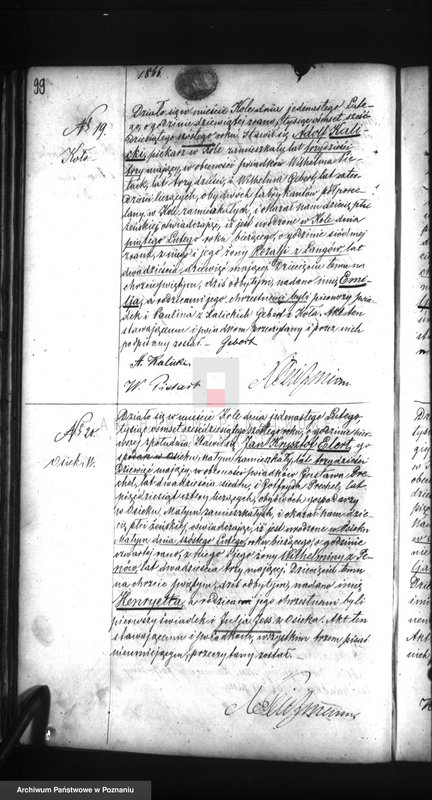 99
1866
№ 19.
Koło
Działo się w mieście Kole dnia jedenastego Lute-
go, o godzinie dziewiątej zrana, tysiąc ośmset sześć-
dziesiątego szóstego roku. Stawił się Adolf Kali-
cki, piekarz w Kole zamieszkały, lat
mający, w obecności świadków Wilhelma
lat trzydzieści, i Wilhelma Gebert, lat
liczących, obydwóch fabrykantów
w Kole zamieszkałych, i okazał nam dziecię płci
żeńskiej, oświadczając, iż jest urodzone w Kole dnia
piątego Lutego roku bieżącego, o godzinie siódmej
zrana, z niego i jego żony Rozalji z Langów, lat
dwadzieścia dziewięć mającej. Dziecięciu temu na
chrzcie świętym, dziś odbytym, nadano imię Emi-
lja, a rodzicami jego chrzestnemi byli pierwszy świa-
dek i Paulina z Kalickich Gebert z Koła. Akt ten
stawającemu i świadkom przeczytany i przez nich
podpisany został. Gebert
A. Kalicki
W.
№ 20.
Osiek W.
Działo się w mieście Kole dnia jedenastego Lutego,
tysiąc ośmset sześćdziesiątego szóstego roku, o godzinie pier-
wszej z południa. Stawił się Jan Krysztof Ebert, go-
spodarz w Osieku małym zamieszkały, lat trzydzieści
dziewięć mający, w obecności świadków Gustawa
lat dwadzieścia siedm, i Gottfryda lat
pięćdziesiąt cztery liczących, obydwóch gospodarzy
w Osieku Małym zamieszkałych, i okazał nam dzie-
cię płci żeńskiej, oświadczając, iż jest urodzone w Osieku
Małym dnia szóstego Lutego, roku bieżącego, o godzinie
czwartej rano, z niego i jego żony Wilhelminy z
lat dwadzieścia trzy mającej. Dziecięciu temu
na chrzcie świętym, dziś odbytym, nadano imię
Henryetta, a rodzicami jego chrzestnemi byli
pierwszy świadek i Julja z Osieka. Akt ten
stawającemu i świadkom, wszystkim trzem pisać
nieumiejącym, przeczytany został.
Archiwum Państwowe w Poznaniu